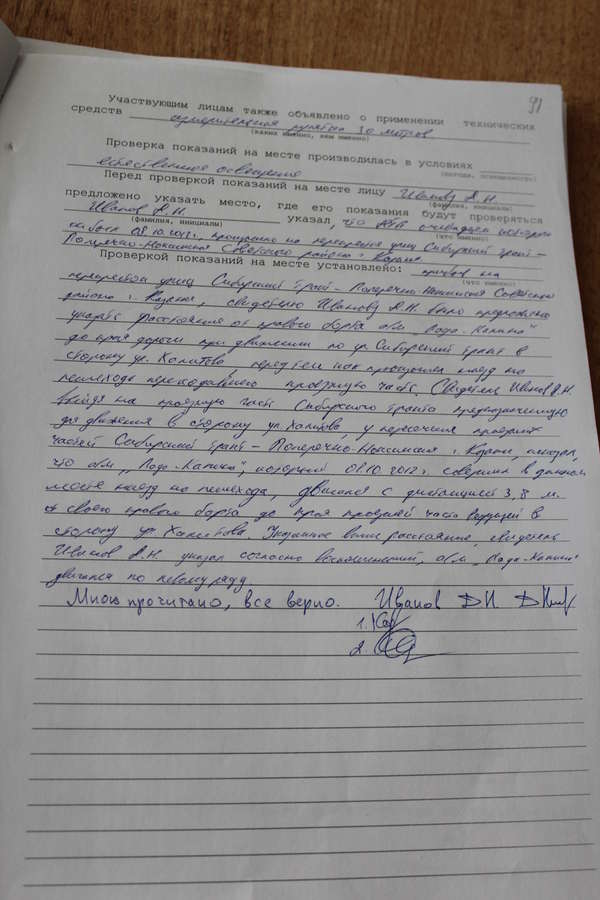 91
Участвующим лицам также объявлено о применении технических
средств измерительная рулетка 10 метров
(каких именно, кем именно)
Проверка показаний на месте производилась в условиях
(погода, освещенность)
естественное освещения
Перед проверкой показаний на месте лицу Иванову Д.Н.
(фамилия, инициалы)
предложено указать место, где его показания будут проверяться
Иванов Д.Н. указал, что был очевидцем
(фамилия, инициалы) (что именно)
08.10.2012г. на перекрестке улиц Сибирский тракт -
Поперечно-Ноксинская Советского района г. Казани
Проверкой показаний на месте установлено: прибыв на
(что именно)
перекресток улиц Сибирский тракт - Поперечно-Ноксинская Советского
района г. Казани, свидетелю Иванову Д.Н. было предложено
указать расстояния от правого борта а/м „Лада-Калина"
до края дороги при движении по ул. Сибирский тракт в
сторону ул. Халитова, перед тем как произошел наезд на
пешехода переходившего проезжую часть. Свидетель Иванов Д.Н.
выйдя на проезжую часть Сибирского тракта предназначенную
для движения в сторону ул. Халитова, у пересечения проезжих
частей Сибирский тракт - Поперечно-Ноксинская г. Казани, показал,
что а/м „Лада-Калина" который 08.10.2012г. совершил в данном
месте наезд на пешехода, двигался с дистанцией 3,8 м.
от своего правого борта до края проезжей части ведущей в
сторону ул. Халитова. Указанное выше расстояние, свидетель
Иванов Д.Н. указал согласно воспоминаний, а/м „Лада-Калина"
двигался по левому ряду.
Мною прочитано, все верно. Иванов Д.Н.
1.
2.